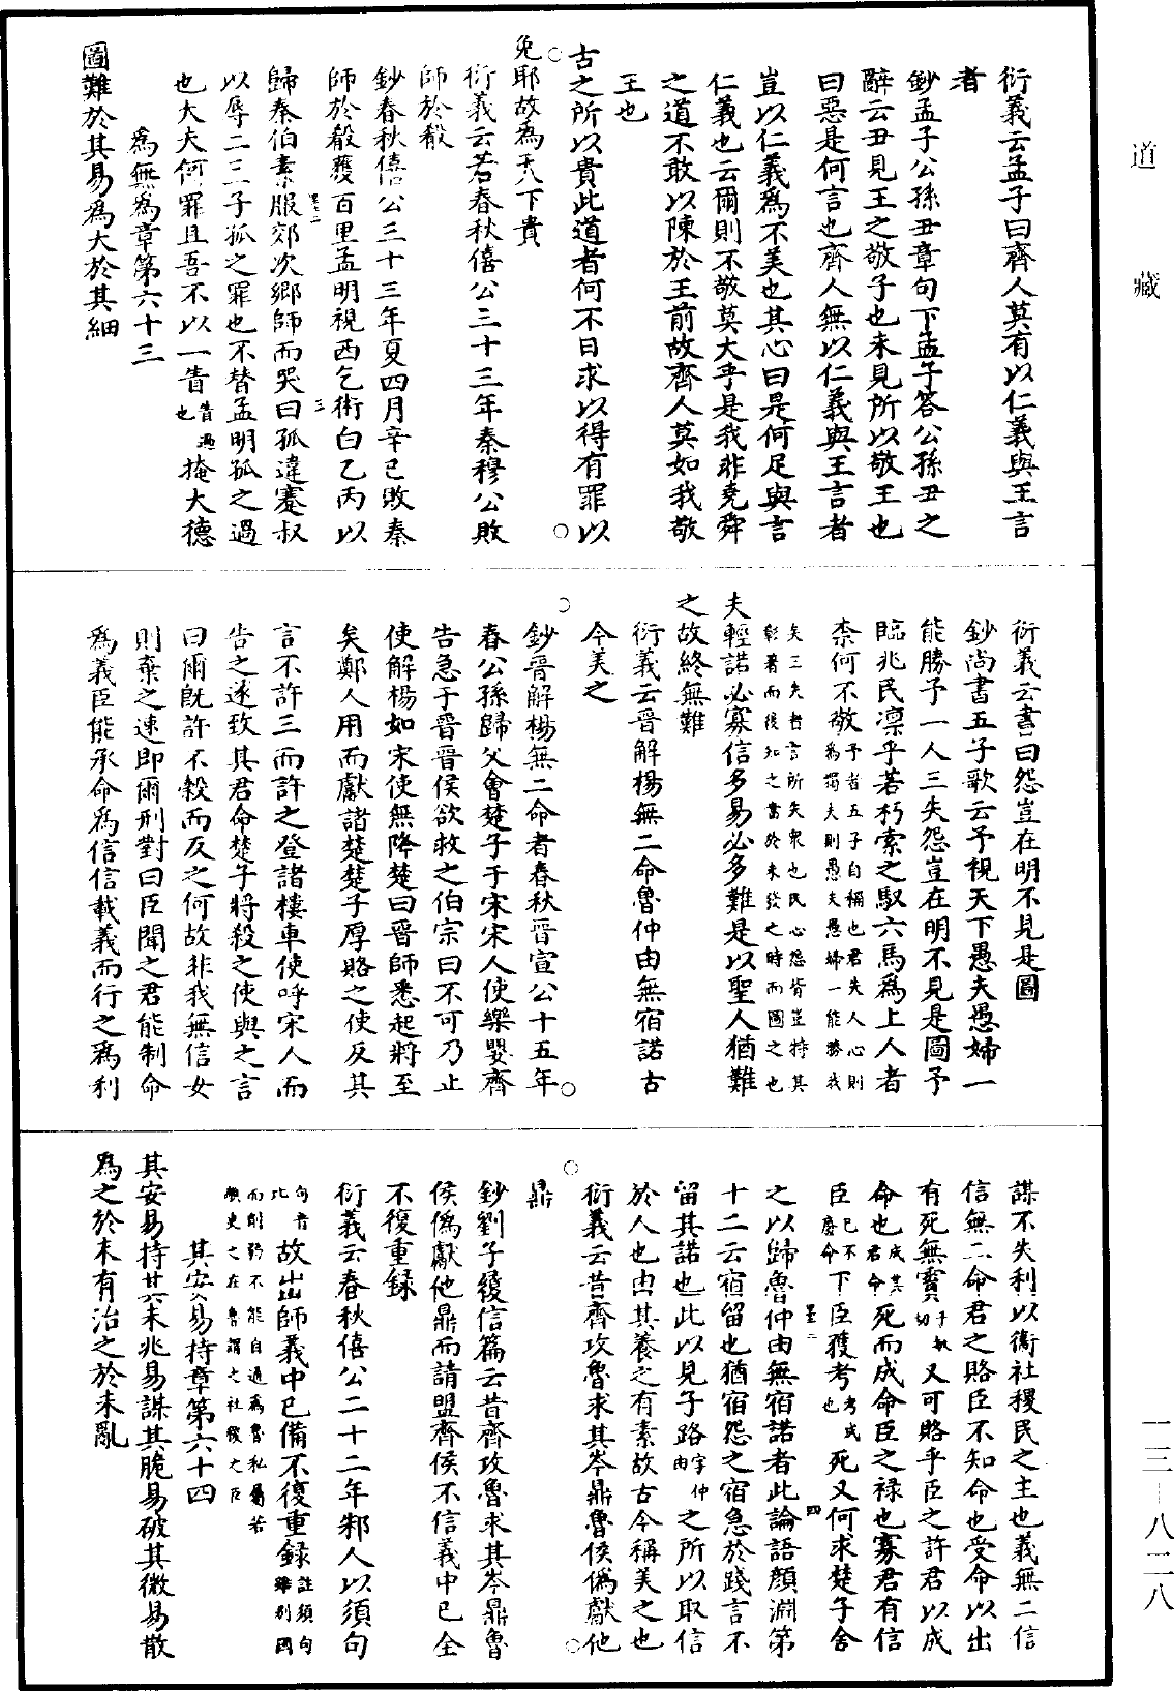 道藏
衍義云孟子曰齊人莫有以仁義與王言
者
鈔孟子公孫丑章句下孟子答公孫丑之
辭云丑見王之敬子也未見所以敬王也
曰惡是何言也齊人無以仁義與王言者
豈以仁義爲不美也其心曰是何足與言
仁義也云爾則不敬莫大乎是我非堯舜
之道不敢以陳於王前故齊人莫如我敬
王也
古之所以貴此道者何不日求以得有罪以
免耶故爲天下貴
衍義云若春秋僖公三十三年秦穆公敗
師於殽
鈔春秋僖公三十三年夏四月辛巳敗秦
師於殽獲百里孟明視西乞術白乙丙以
歸秦伯素服郊次鄉師而哭曰孤違蹇叔
以辱二三子孤之罪也不替孟明孤之過
也大夫何罪且吾不以一眚眚過也掩大德
爲無爲章第六十三
圖難於其易爲大於其細
衍義云書曰怨豈在明不見是圖
鈔尚書五子歌云予視天下愚夫愚婦一
能勝予一人三失怨豈在明不見是圖予
臨兆民凛乎若朽索之馭六馬爲上人者
柰何不敬予者五子自稱也君失人心則爲獨夫則愚夫愚婦一能勝我
矣三失者言所失衆也民心怨背豈特其彰著而後知之當於未發之時而圖之也
夫輕諾必寡信多易必多難是以聖人猶難
之故終無難
衍義云晉解楊無二命魯仲由無宿諾古
今美之
鈔晉解楊無二命者春秋晉宣公十五年
春公孫歸父會楚子于宋宋人使樂嬰齊
告急于晉晉侯欲救之伯宗曰不可乃止
使解楊如宋使無降楚曰晉師悉起將至
矣鄭人用而獻諸楚楚子厚賂之使反其
言不許三而許之登諸樓車使呼宋人而
告之遂致其君命楚子將殺之使與之言
曰爾旣許不穀而反之何故非我無信女
則棄之速即爾刑對曰臣聞之君能制命
爲義臣能承命爲信信載義而行之爲利
謀不失利以衞社稷民之主也義無二信
信無二命君之賂臣不知命也受命以出
有死無霣又可賂乎臣之許君以成
命也成其君命死而成命臣之禄也寡君有信
臣己不廢命下臣獲考考成也死又何求楚子舍
之以歸魯仲由無宿諾者此論語顔淵第
十二云宿留也猶宿怨之宿急於踐言不
留其諾也此以見子路字仲由之所以取信
於人也由其養之有素故古今稱美之也
衍義云昔齊攻魯求其岑鼎魯侯僞獻他
鼎
鈔劉子履信篇云昔齊攻魯求其岑鼎魯
侯僞獻他鼎而請盟齊侯不信義中已全
不復重録
衍義云春秋僖公二十二年邾人以須句
句音比故出師義中已備不復重録註須句雖別國
而削弱不能自通爲魯私屬若顓臾之在魯謂之社稷之臣
其安易持章第六十四
其安易持其未兆易謀其脆易破其微易散
爲之於未有治之於未亂
一三-八二八